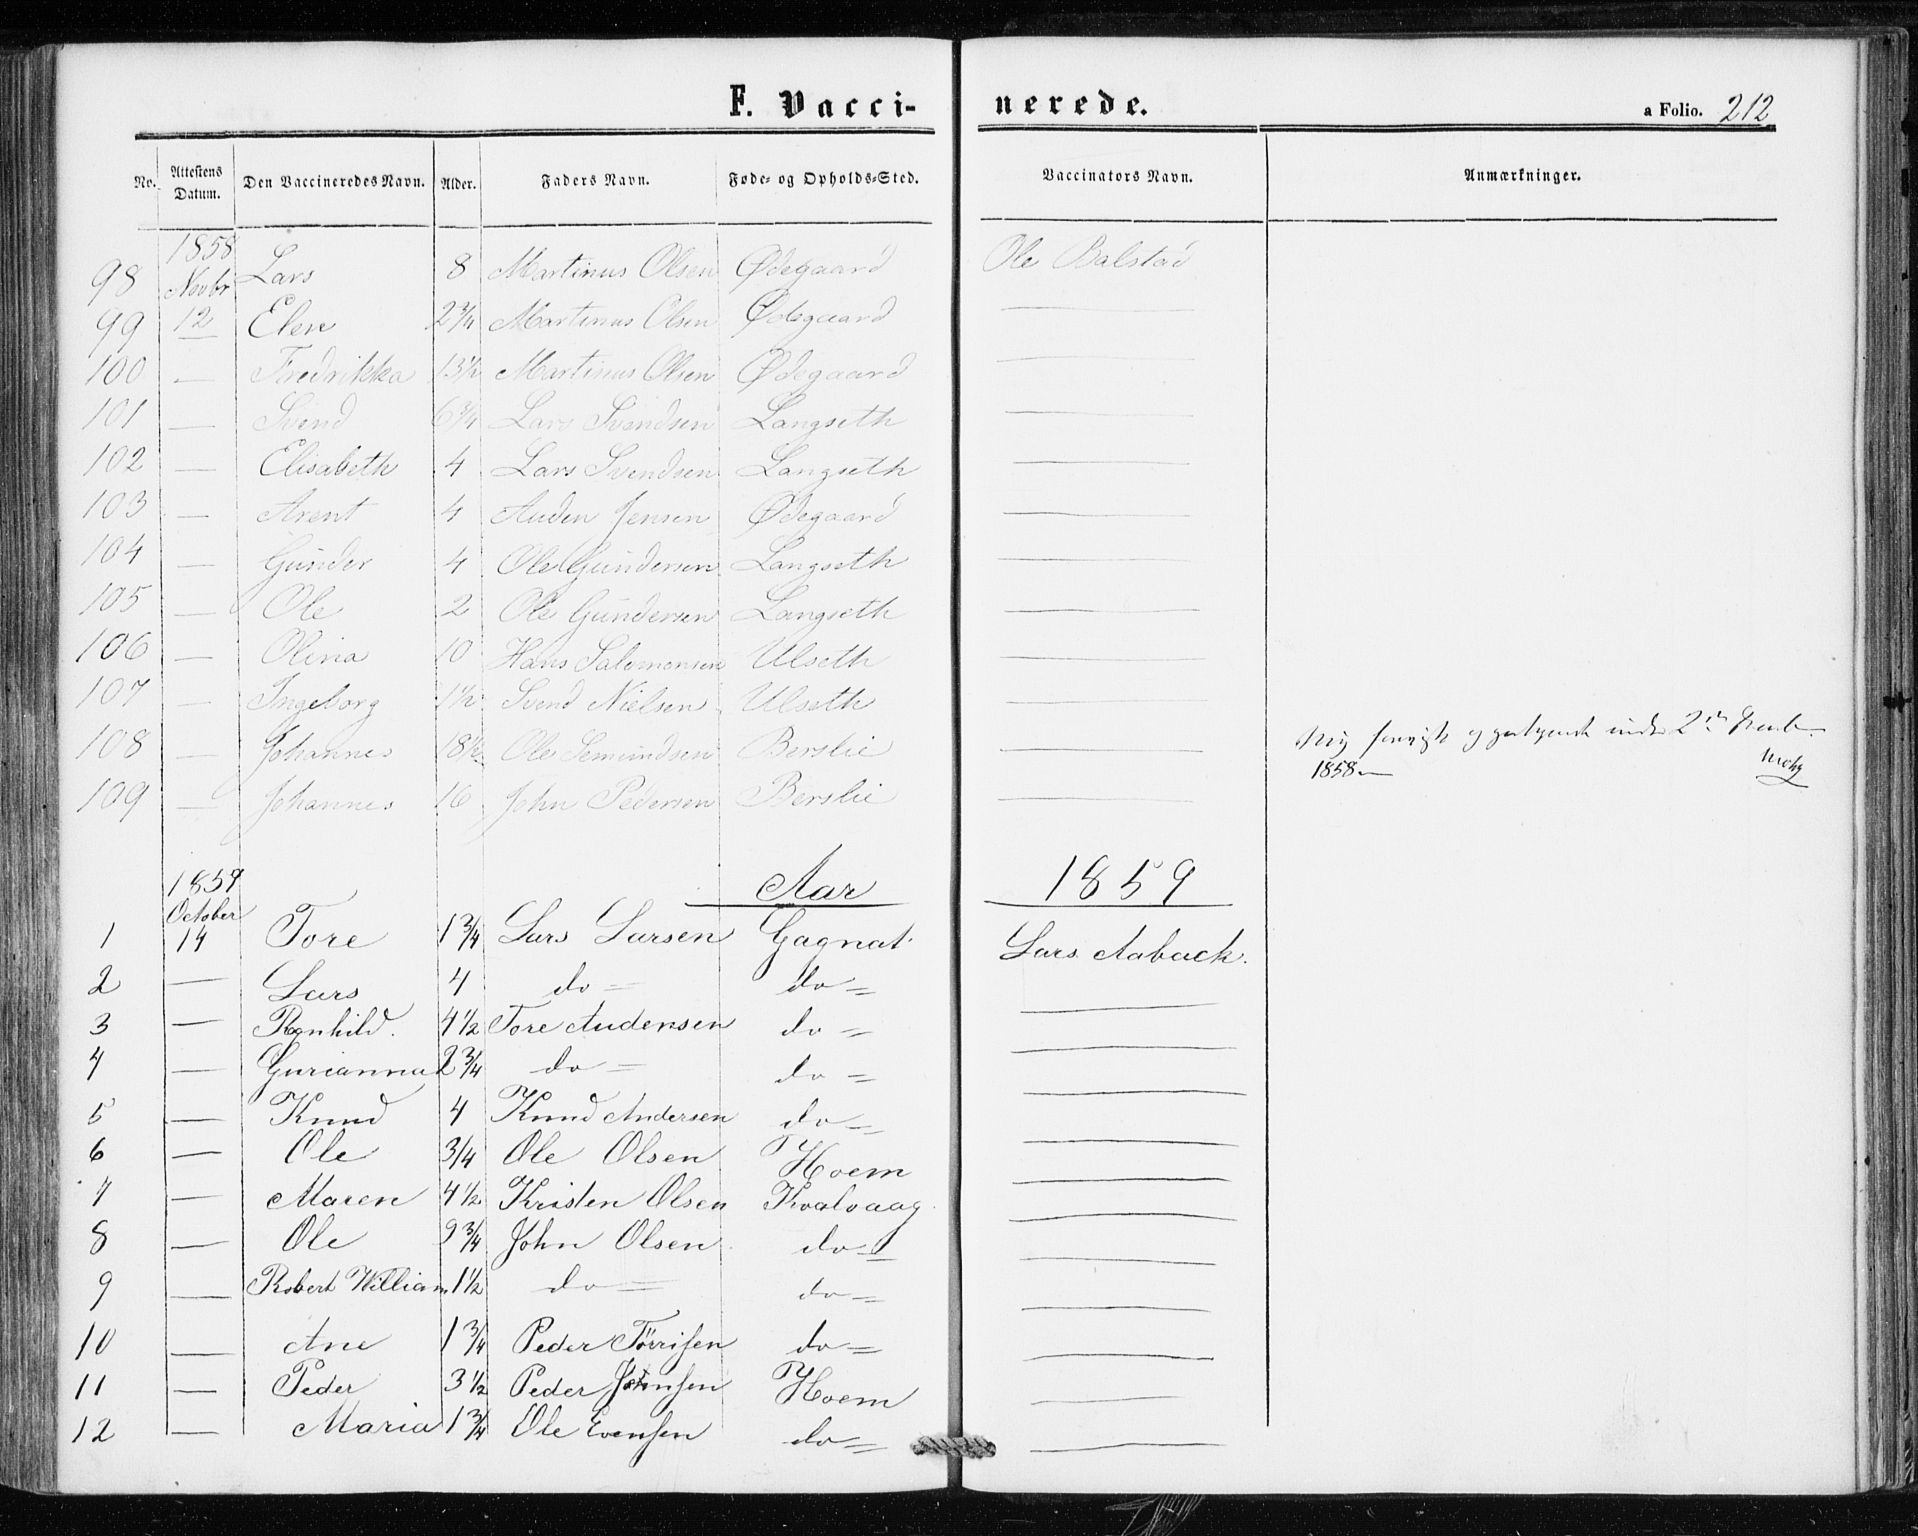 F. Vacci- nerede. a Folio. 212
No. Attestens Datum. Den Vaccineredes Navn. Alder. Faders Navn. Føde- og Opholds-Sted. Vaccinators Navn. Anmærkninger.
1858
98 Novbr Lars 8 Martinus Olsen Ødegaard Ole Balstad
99 12 Elen 2 3/4 Martinus Olsen Ødegaard —
100 — Fredrikka 13 1/2 Martinus Olsen Ødegaard —
101 — Svend 6 3/4 Lars Svendsen Langseth —
102 — Elisabeth 4 Lars Svendsen Langseth —
103 — Arent 4 Auden Jensen Ødegaard —
104 — Gunder 4 Ole Gundersen Langseth —
105 — Ole 2 Ole Gundersen Langseth —
106 — Olina 10 Hans Salomonsen Ulseth —
107 — Ingeborg 1 1/2 Svend Nielsen Ulseth —
108 — Johannes 18 1/2 Ole Semundsen Berslie —
1858
109 — Johannes 16 John Pedersen Berslie —
Aar 1859
1859
October
1 14 Tore 1 3/4 Lars Larsen Gagnat Lars Aaback.
2 — Lars 4 do — do — —
3 — Ragnhild. 4 1/2 Tore Andersen do — —
4 — Gurianna 2 3/4 do — do — —
5 — Knud 4 Knud Andersen do — —
6 — Ole 3/4 Ole Olsen Hoem —
7 — Maren 4 1/2 Kristen Olsen Kvalvaag —
8 — Ole 9 3/4 John Olsen do — —
9 — Robert William 1 1/2 do — do — —
10 — Ane 1 3/4 Peder Törrisen do — —
11 — Peder 3 1/2 Peder Johnsen Hoem —
12 — Maria 1 3/4 Ole Evensen do — —